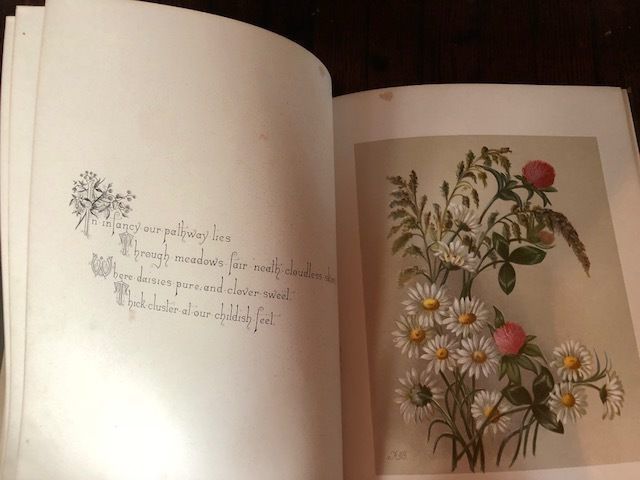 In infancy our pathway lies
Through meadows fair 'neath cloudless skies
Where daisies pure, and clover sweet
Thick cluster at our childish feet.